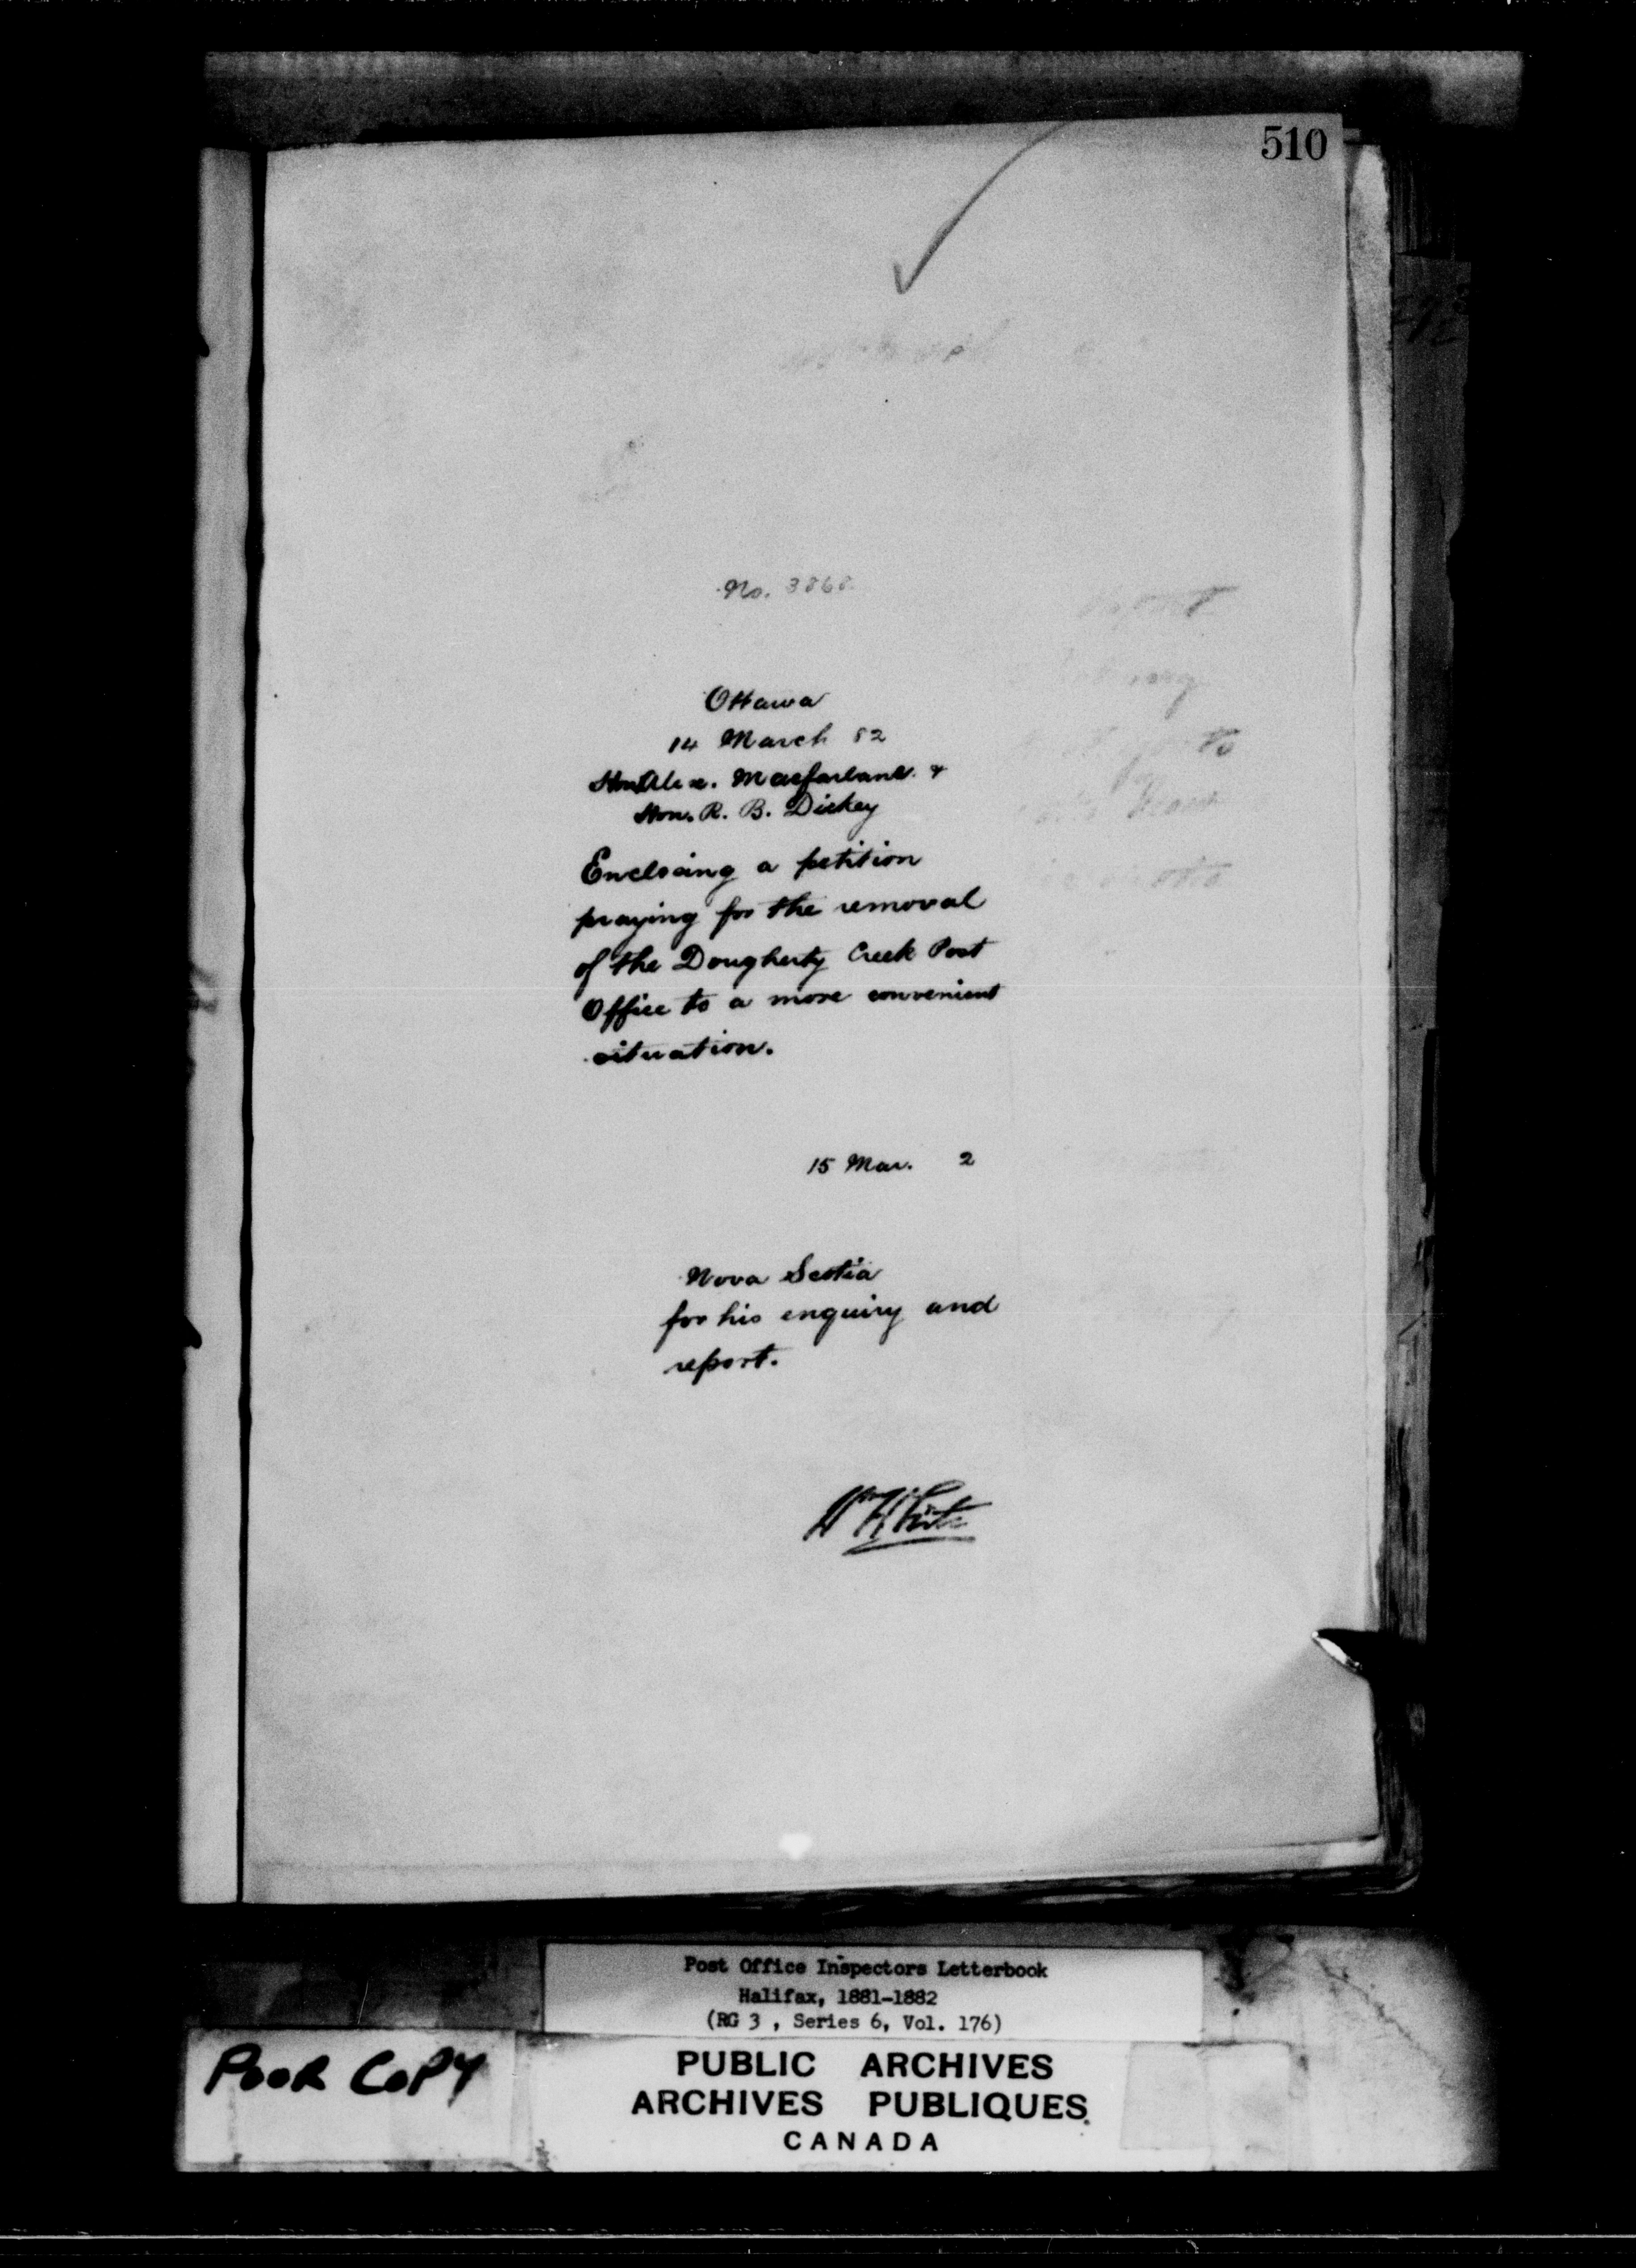 510
No. 3868
Ottawa
14 March 82
Hon. Alex. Macfarlane &
Hon. R. B. Dickey
Enclosing a petition
praying for the removal
of the Dougherty Creek Post
Office to a more convenient
situation.
15 Mar. 2
Nova Scotia
for his enquiry and
report.
Wm White
Post Office Inspectors Letterbook
Halifax, 1881-1882
(RG 3 , Series 6, Vol. 176)
POOR COPY
PUBLIC ARCHIVES
ARCHIVES PUBLIQUES
CANADA